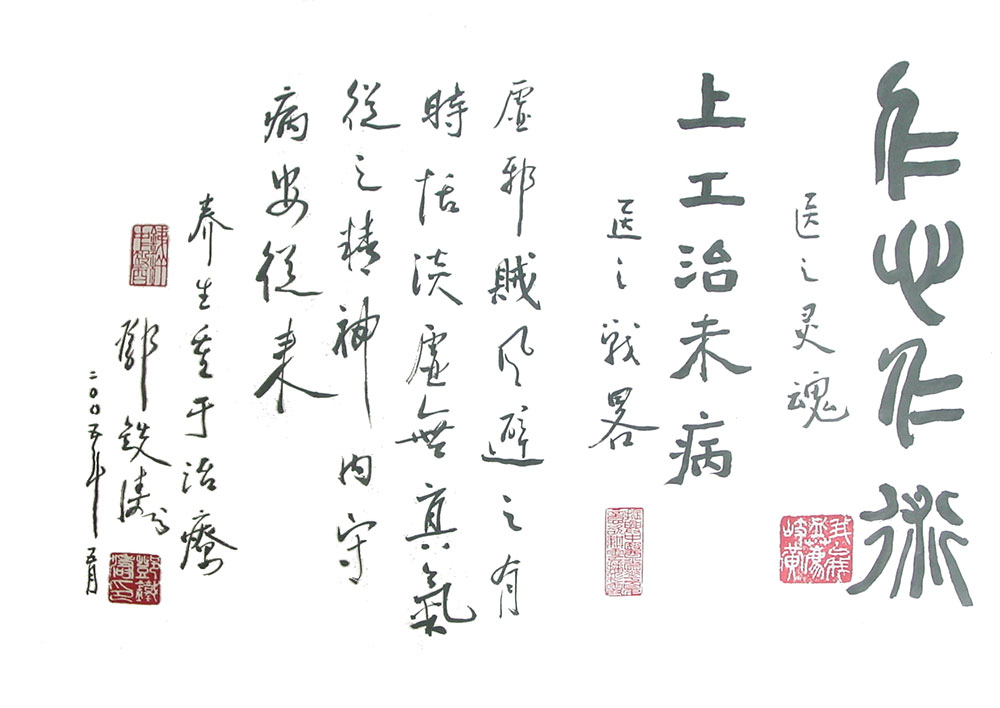 仁心仁術
医之灵魂
上工治未病
医之战畧
虚邪賊风避之有
時恬淡虚無真氣
從之精神内守
病安從来
养生重于治療
鄧鉄涛书
鄧鐵濤印
二〇〇五年五月